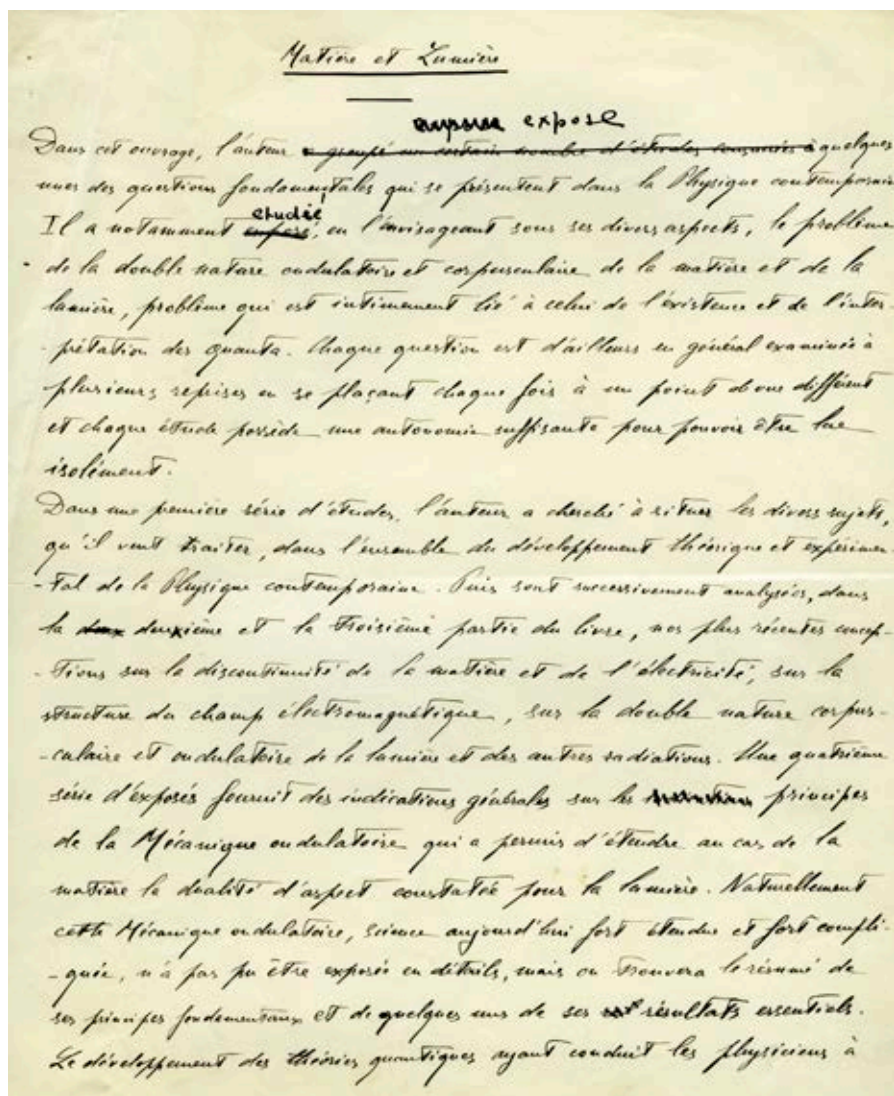 Matière et Lumière
expose
Dans cet ouvrage, l'auteur a groupé un certain nombre d'études consacrées à quelques
unes des questions fondamentales qui se présentent dans la Physique contemporaine
etudié
Il a notamment exposé, en l'envisageant sous ses divers aspects, le problème
de la double nature ondulatoire et corpusculaire de la matière et de la
lumière, problème qui est intimement lié à celui de l'existence et de l'inter-
-prétation des quanta. Chaque question est d'ailleurs en général examinée à
plusieurs reprises en se plaçant chaque fois à un point de vue différent
et chaque étude possède une autonomie suffisante pour pouvoir être lue
isolément.
Dans une première série d'études, l'auteur a cherché à situer les divers sujets,
qu'il veut traiter, dans l'ensemble du développement théorique et expérimen-
-tal de la Physique contemporaine. Puis sont successivement analysées, dans
la deux deuxième et la troisième partie du livre, nos plus récentes concep-
-tions sur la discontinuité de la matière et de l'électricité, sur la
structure du champ électromagnétique, sur la double nature corpus-
-culaire et ondulatoire de la lumière et des autres radiations. Une quatrième
série d'exposés fournit des indications générales sur les principes
de la Mécanique ondulatoire qui a permis d'étendre au cas de la
matière la dualité d'aspect constatée pour la lumière. Naturellement
cette Mécanique ondulatoire, science aujourd'hui fort étendue et fort compli-
-quée, n'a pas pu être exposée en détails, mais on trouvera le résumé de
ses principes fondamentaux et de quelques uns de ses résultats essentiels.
Le développement des théories quantiques ayant conduit les physiciens à